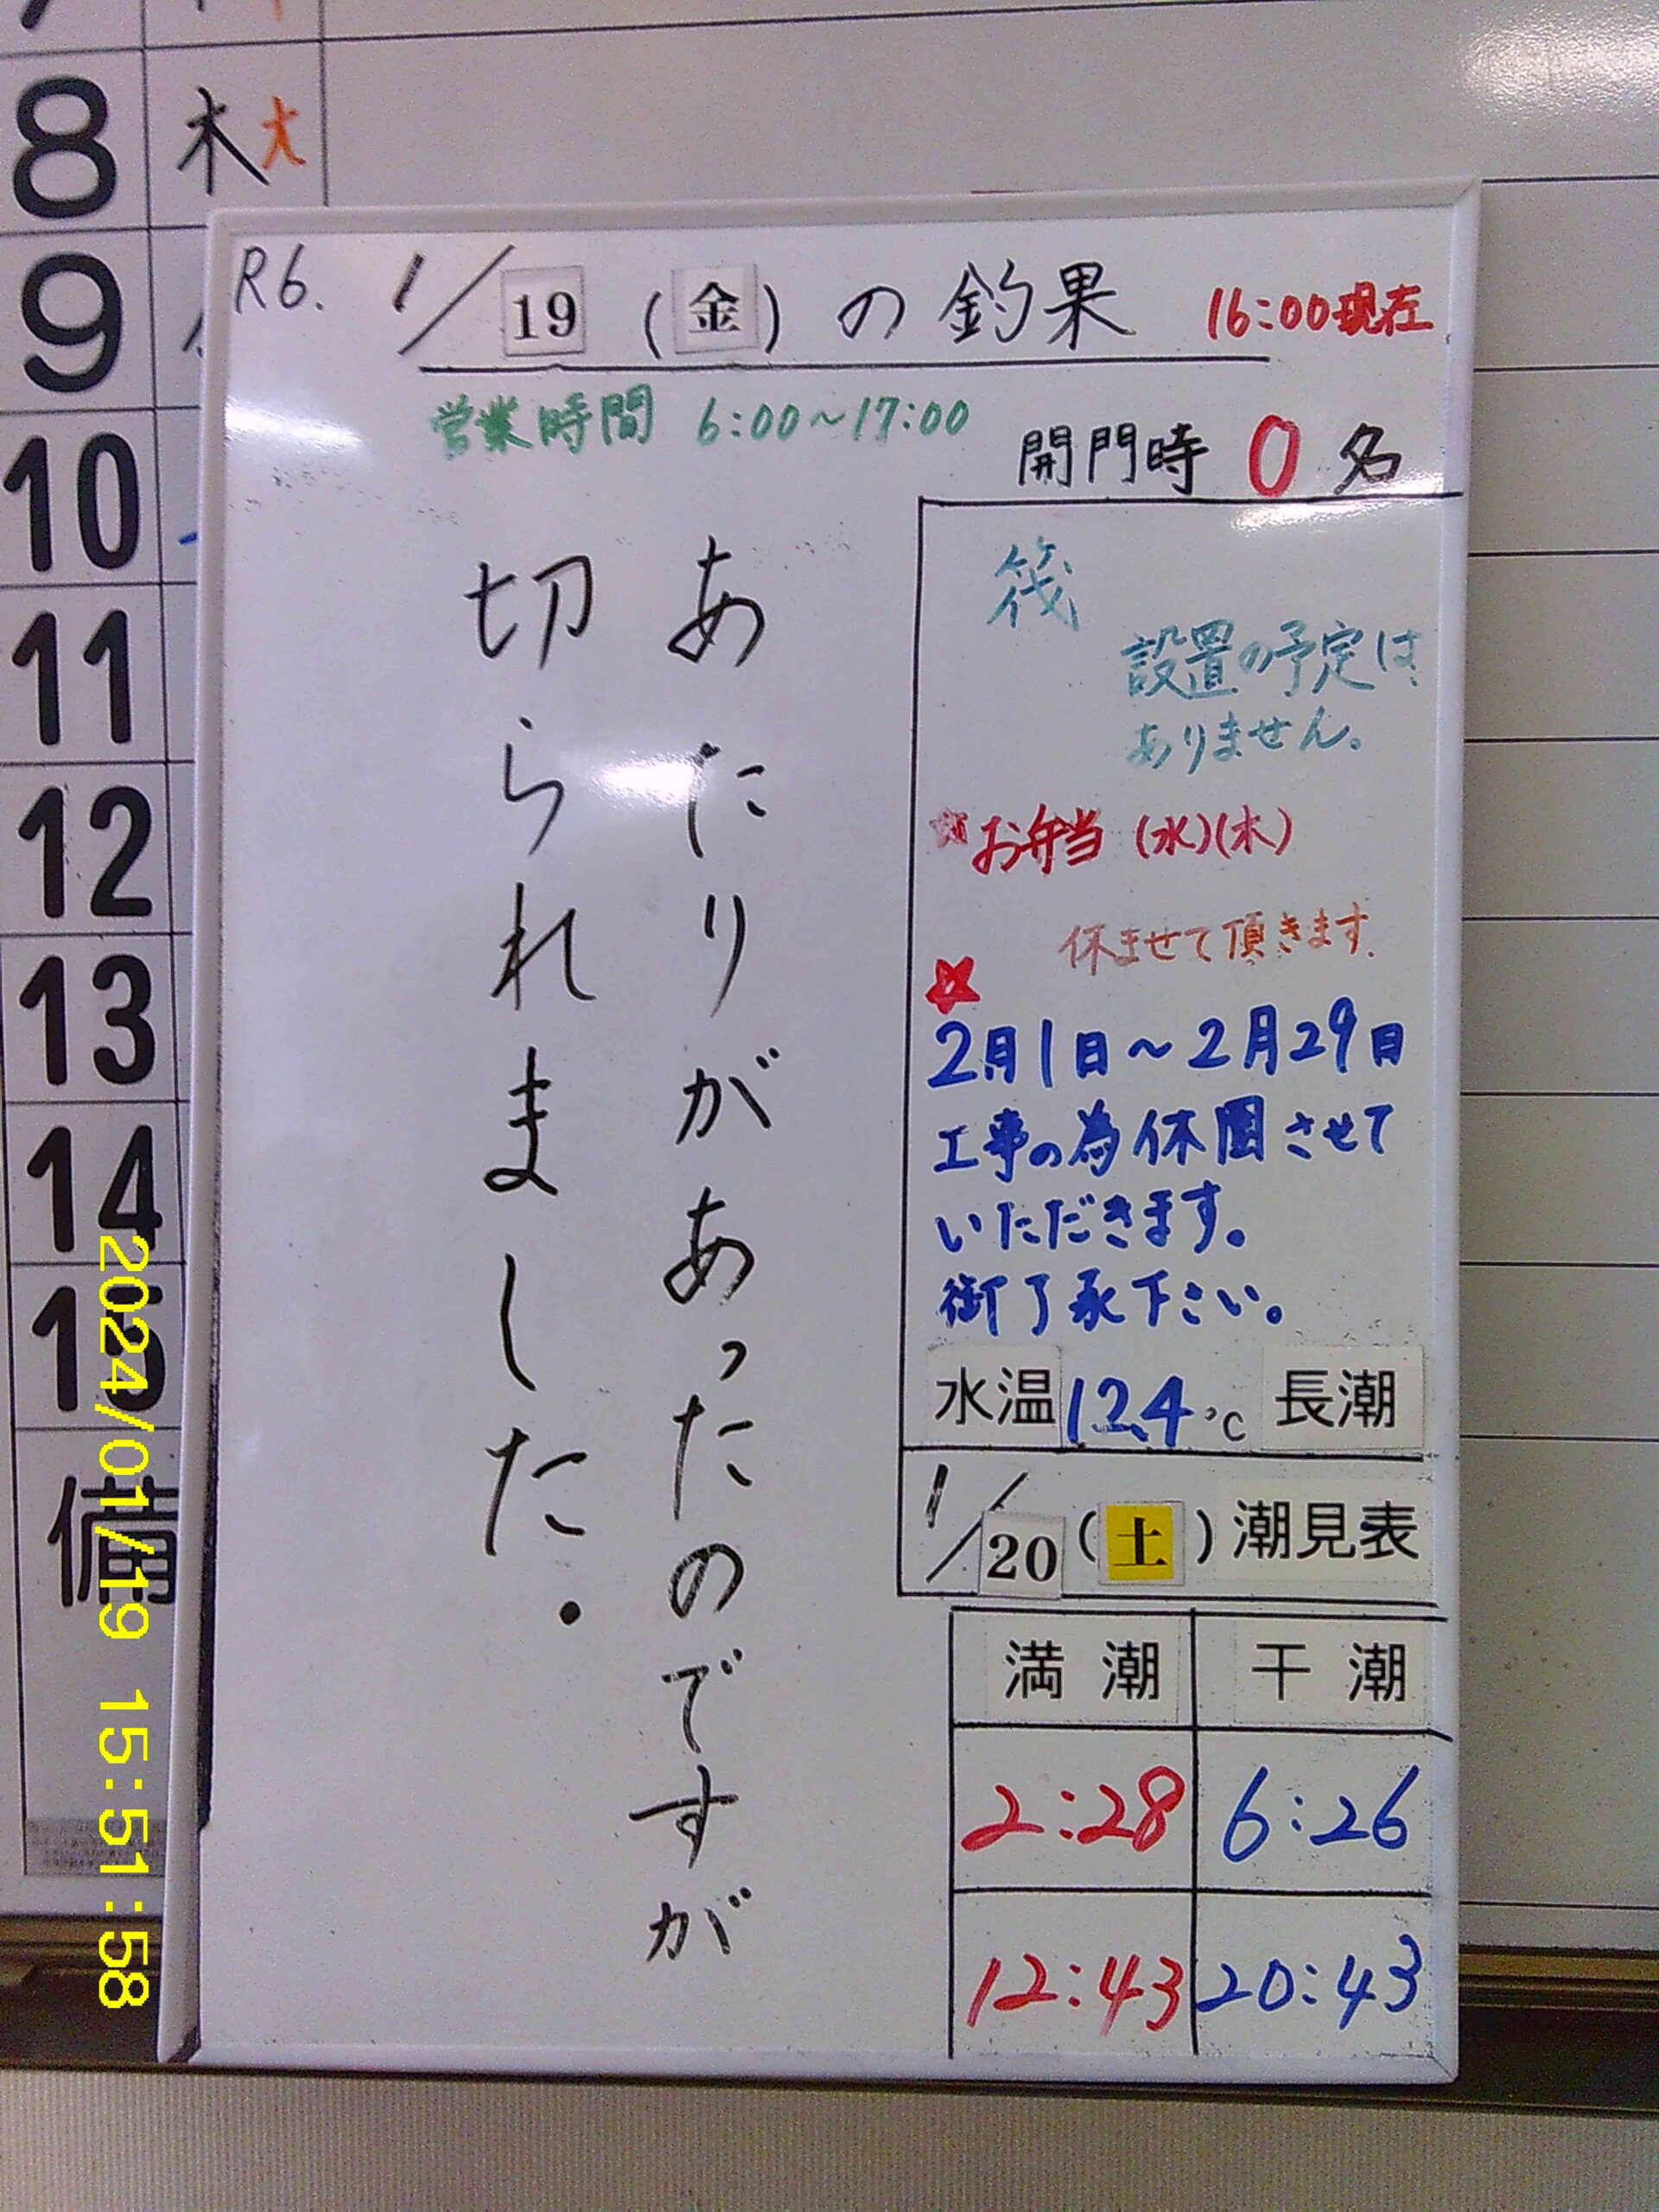 8 木 大
9
10
11
12
13
14
15
備
R6. 1/19 (金) の釣果 16:00現在
営業時間 6:00~17:00
開門時 0 名
あたりがあったのですが
切られました.
筏
設置の予定は
ありません。
☆お弁当 (水)(木)
休ませて頂きます.
★
2月1日~2月29日
工事の為休園させて
いただきます。
御了承下さい。
水温 12.4℃ 長潮
1/20 (土) 潮見表
満潮 干潮
2:28 6:26
12:43 20:43
2024/01/19 15:51:58